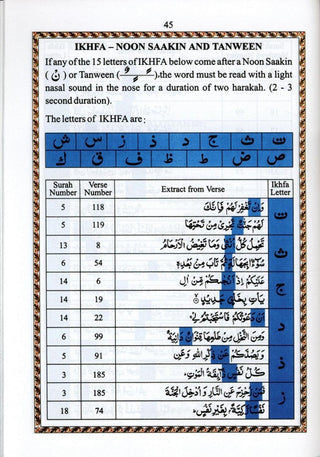 45
IKHFA – NOON SAAKIN AND TANWEEN
If any of the 15 letters of IKHFA below come after a Noon Saakin
( نْ ) or Tanween ( ــًــٍــٌ ).the word must be read with a light
nasal sound in the nose for a duration of two harakah. (2 - 3
second duration).
The letters of IKHFA are:
ت ث ج د ذ ز س ش
ص ض ط ظ ف ق ك
Surah Number Verse Number Extract from Verse Ikhfa Letter
5 118 وَاِنْ تَغْفِرْ لَهُمْ فَاِنَّكَ ت
5 119 لَهُمْ جَنّٰتٌ تَجْرِيْ مِنْ تَحْتِهَا
13 8 تَحْمِلُ كُلُّ اُنْثٰى وَمَا تَغِيْضُ الْاَرْحَامُ ث
6 54 سُوْٓءًا بِجَهَالَةٍ ثُمَّ تَابَ مِنْ بَعْدِهٖ
14 6 عَلَيْكُمْ اِذْ اَنْجٰىكُمْ مِّنْ اٰلِ ج
14 19 يَاْتِ بِخَلْقٍ جَدِيْدٍ
14 22 اَنْ دَعَوْتُكُمْ فَاسْتَجَبْتُمْ لِيْ د
6 99 وَمِنَ النَّخْلِ مِنْ طَلْعِهَا قِنْوَانٌ دَانِيَةٌ
5 91 وَيَصُدَّكُمْ عَنْ ذِكْرِ اللّٰهِ وَعَنِ ذ
3 185 كُلُّ نَفْسٍ ذَآئِقَةُ الْمَوْتِ
3 185 فَمَنْ زُحْزِحَ عَنِ النَّارِ وَاُدْخِلَ الْجَنَّةَ ز
18 74 نَفْسًا زَكِيَّةً بِغَيْرِ نَفْسٍ